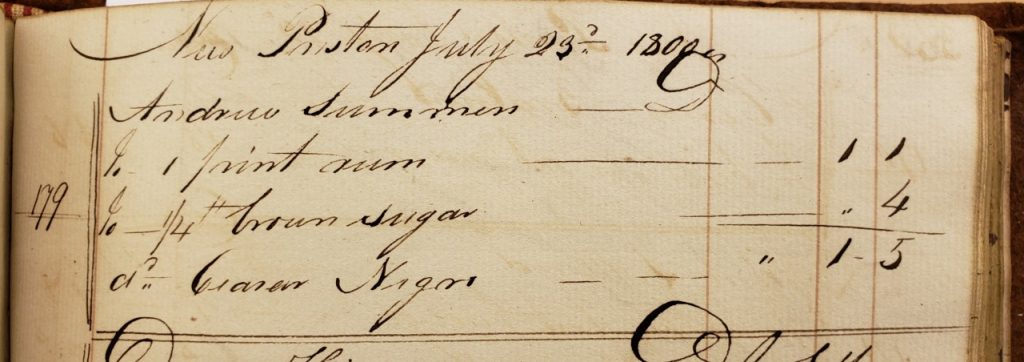 New Preston July 23d 180
Andrew Summers
To 1 pint rum 1 1
179 To 1/4 lb brown sugar " 4
dd Ceasar Negro " 1-5